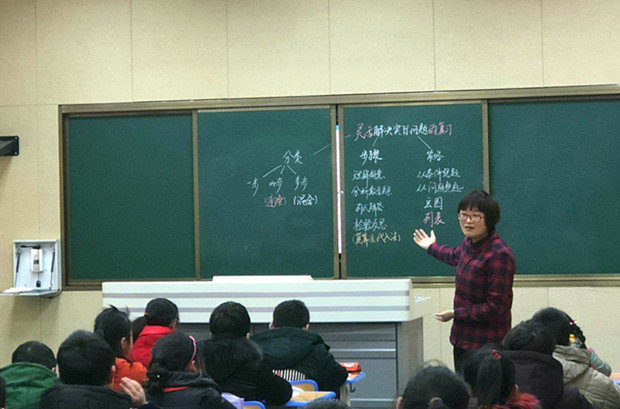 灵活解决实际问题的复习
分类
一步 两步 多步
(混合)
步骤
理解题意
分析数量关系
列式解答
检验反思
策略
从条件想起
从问题想起
画图
列表